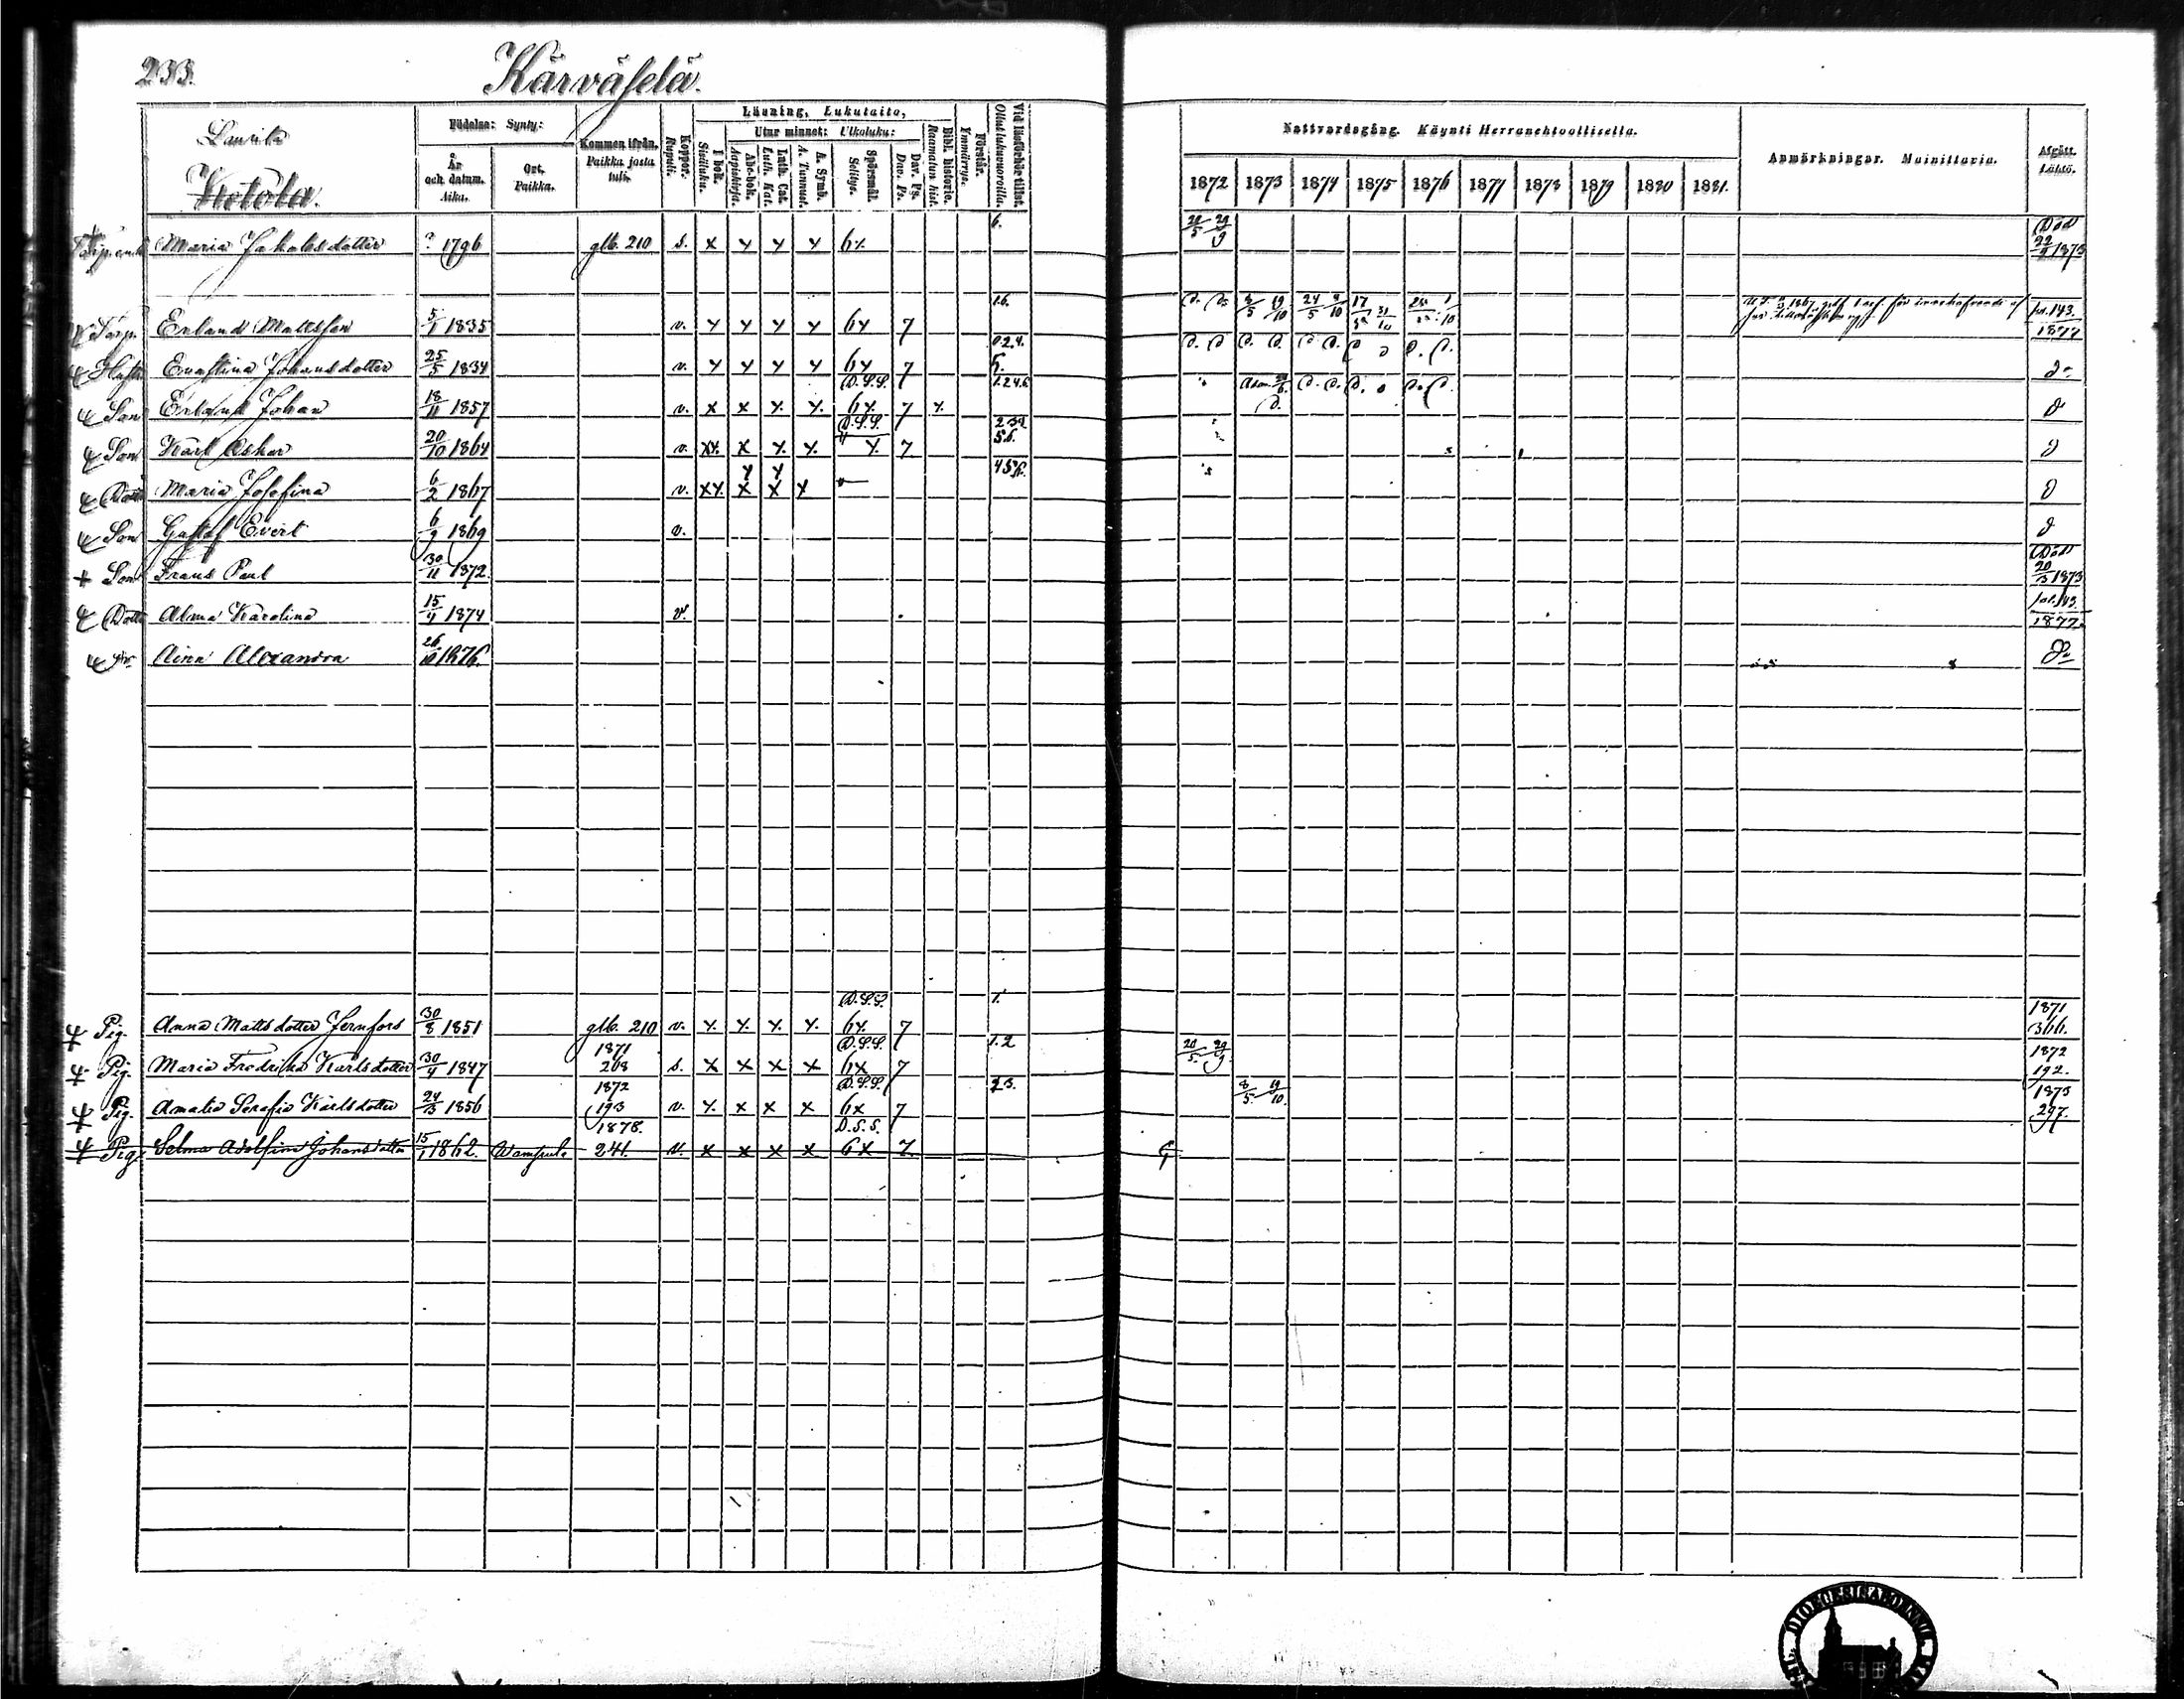 233.
Kärväselä.
Laurila
Ketola.
Födelse: Synty:
År och datum. Aika.
Ort. Paikka.
Kommen ifrån. Paikka, josta tuli.
Koppor. Rupuli.
Läsning, Lukutaito,
I bok. Sisäluku.
Utur minnet: Ulkoluku:
Abc-bok. Aapiskirja.
Luth. Cat. Luth. Kat.
A. Symb. A. Tunnust.
Spörsmål. Selitys.
Dav. Ps. Dav. Ps.
Bibl. historie. Raamatun hist.
Förstår. Ymmärrys.
Vid läsförhör tillst. Ollut lukuvuoroilla.
Nattvardsgång. Käynti Herranehtoollisella.
1872 1873 1874 1875 1876 1877 1878 1879 1880 1881.
Anmärkningar. Mainittavia.
Afgått. Lähtö.
Maria Jakobsdotter ? 1796 glb. 210 s. x y y y 6x 6. 20/5 29/9 Död 22/ 1873
Torp. Erland Mattsson 5/1 1835 v. y y y y 6y 7 16. 8/5 19/10 24/5 /10 17/ 31/10 pag. 143. 1877
Hustr Evastina Johansdotter 25/5 1834 v. y y y y 6y 7
Son Erland Johan 18/11 1857 v. x x y. y. D.S.S. 6y. 7 y. 1.2.4.6
Son Karl Oskar 20/10 1864 v. xx. x y. y. D.S.S. y. 7 2.3.4. 5.6.
Dotter Maria Josefina 6/2 1867 v. xx. x x x y y 4.5.6.
Son Gustaf Evert 6/9 1869 v.
+ Son Frans Paul 30/11 1872. Död 20/3 1873
Dotter Alma Karolina 15/4 1874 v. pag. 143. 1877.
Aina Alexandra 26/10 1876.
Pig. Anna Mattsdotter Jernfors 30/8 1851 glb. 210 v. y. y. y. y. D.S.S. 6y. 7 1. 1871 366.
Pig. Maria Fredrika Karlsdotter 30/4 1847 1871 208 s. x x x x D.S.S. 6x 7 1.2 20/5. 29/9 1872 192.
Pig. Amalia Serafia Karlsdotter 24/3 1856 1872 193 v. y. x x x D.S.S. 6x 7 23. 8/5. 19/10. 1873 297.
Pig. Selma Adolfina Johansdotter 15/1 1862. Wampula 1878. 241. v. x x x x D.S.S. 6x 7.